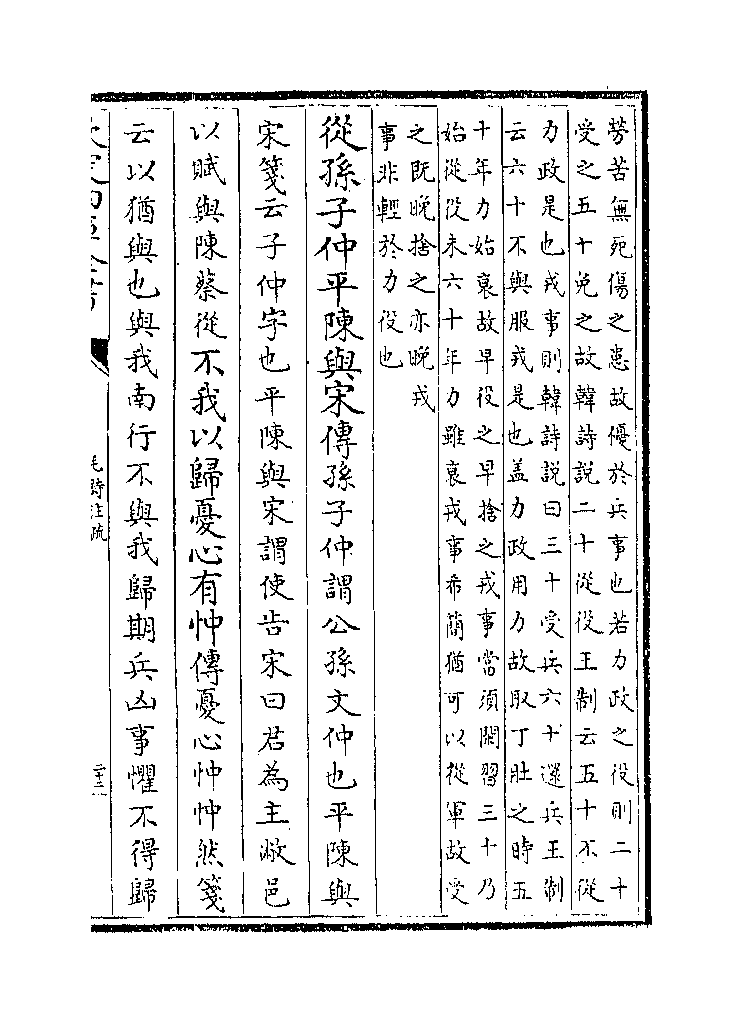 勞苦無死傷之患故優於兵事也若力政之役則二十
受之五十免之故韓詩説二十從役王制云五十不從
力政是也戎事則韓詩説曰三十受兵六十還兵王制
云六十不與服戎是也盖力政用力故取丁壯之時五
十年力始衰故早役之早捨之戎事當須閑習三十乃
始從役未六十年力雖衰戎事希簡猶可以從軍故受
之既晚捨之亦晚戎
事非輕於力役也
從孫子仲平陳與宋傳孫子仲謂公孫文仲也平陳與
宋箋云子仲字也平陳與宋謂使告宋曰君為主敝邑
以賦與陳蔡從不我以歸憂心有忡傳憂心忡忡然箋
云以猶與也與我南行不與我歸期兵凶事懼不得歸
毛詩注疏
二十二